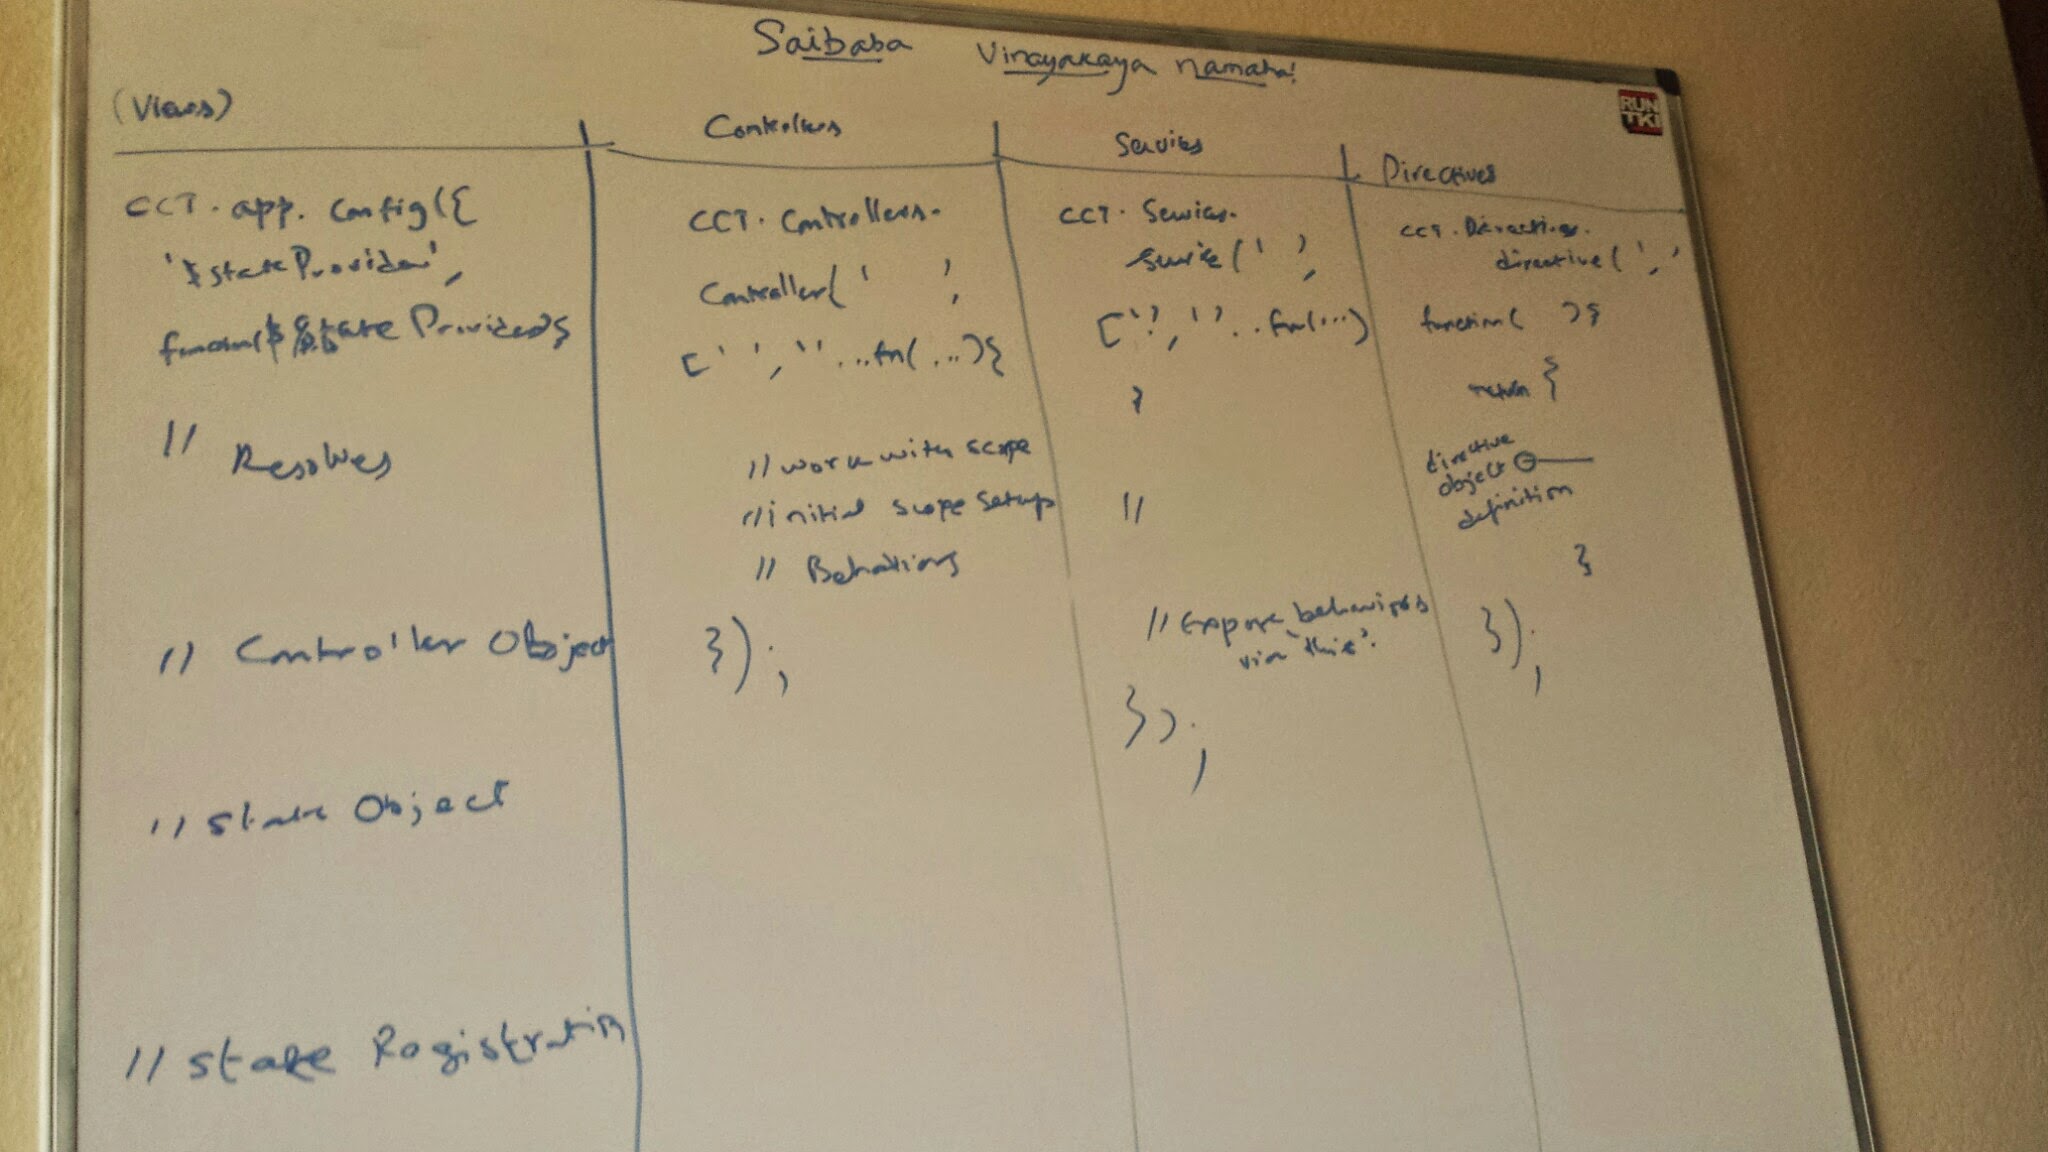 Saibaba Vinayakaya namaha!
RUN
TKI
(Views)
CCT.app.Config({
'$stateProvider',
function($stateProvider){
// Resolves
// Controller Object
// State Object
// State Registration
Controllers
CCT.Controllers.
Controller(' ',
[' ', ' ' ...fn(...){
// work with scope
// initial scope setup
// Behaviors
});
Services
CCT.Services.
Service(' ',
[' ', ' '...fn(...)
}
//
// Expose behaviors
via 'this'.
});
Directives
CCT.Directives.
directive(' , '
function( ){
return {
directive
object
definition
}
});